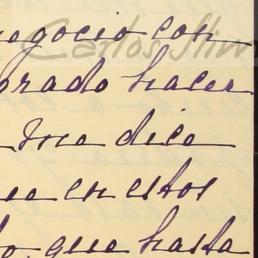 negocio con
Carlos Slim
orado hacer
me dice
ue en estos
lo que hasta